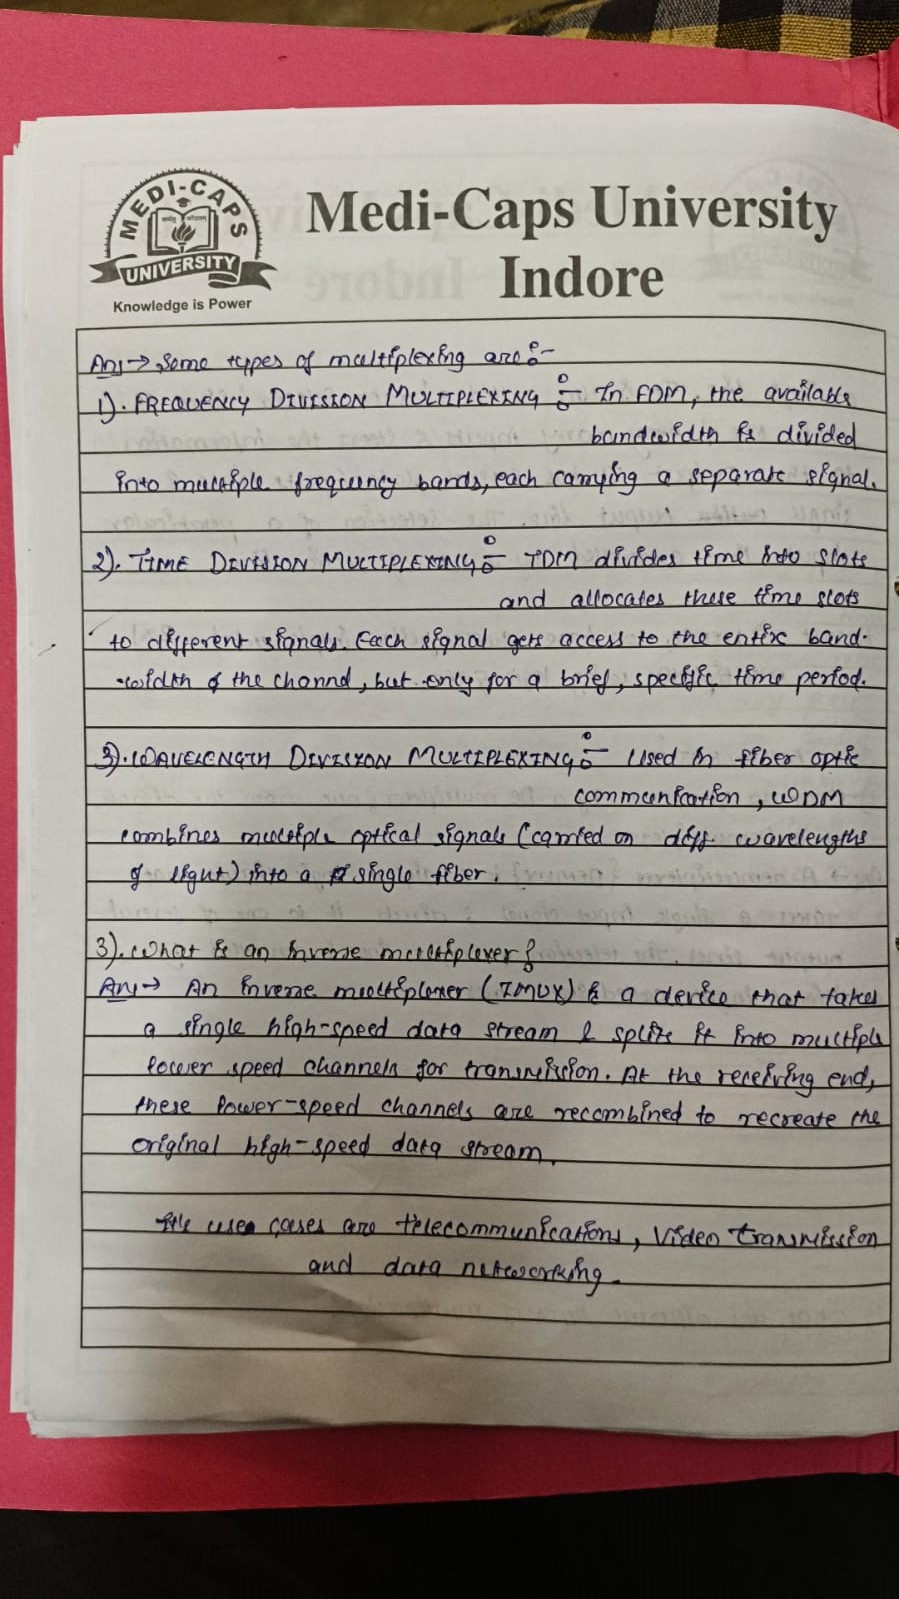 MEDI-CAPS
UNIVERSITY
Knowledge is Power
Medi-Caps University
Indore
Ans → Some types of multiplexing are :-
1). FREQUENCY DIVISION MULTIPLEXING :- In FDM, the available
bandwidth is divided
into multiple frequency bands, each carrying a separate signal.
2). TIME DIVISION MULTIPLEXING :- TDM divides time into slots
and allocates these time slots
to different signals. Each signal gets access to the entire band-
-width of the channel, but only for a brief, specific time period.
3). WAVELENGTH DIVISION MULTIPLEXING :- Used in fiber optic
communication, WDM
combines multiple optical signals (carried on diff. wavelengths
of light) into a single fiber.
3). What is an inverse multiplexer?
Ans → An inverse multiplexer (IMUX) is a device that takes
a single high-speed data stream & splits it into multiple
lower speed channels for transmission. At the receiving end,
these lower-speed channels are recombined to recreate the
original high-speed data stream.
use cases are telecommunications, video transmission
and data networking.